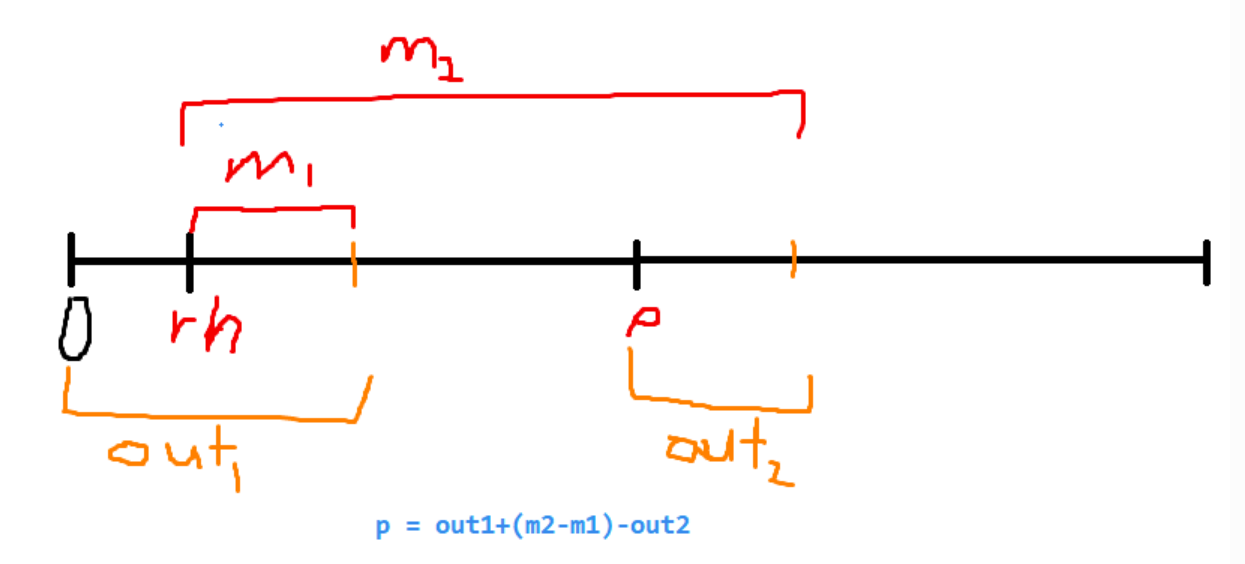 m₂
m₁
0
rh
p
out₁
out₂
p = out1+(m2-m1)-out2